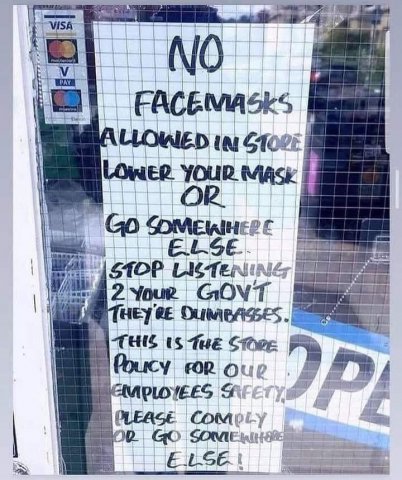 VISA
NO
FACEMASKS
ALLOWED IN STORE
LOWER YOUR MASK
OR
GO SOMEWHERE
ELSE.
STOP LISTENING
2 YOUR GOV'T
THEY'RE DUMBASSES.
THIS IS THE STORE
POLICY FOR OUR
EMPLOYEES SAFETY.
PLEASE COMPLY
OR GO SOMEWHERE
ELSE!
V
PAY
OPE